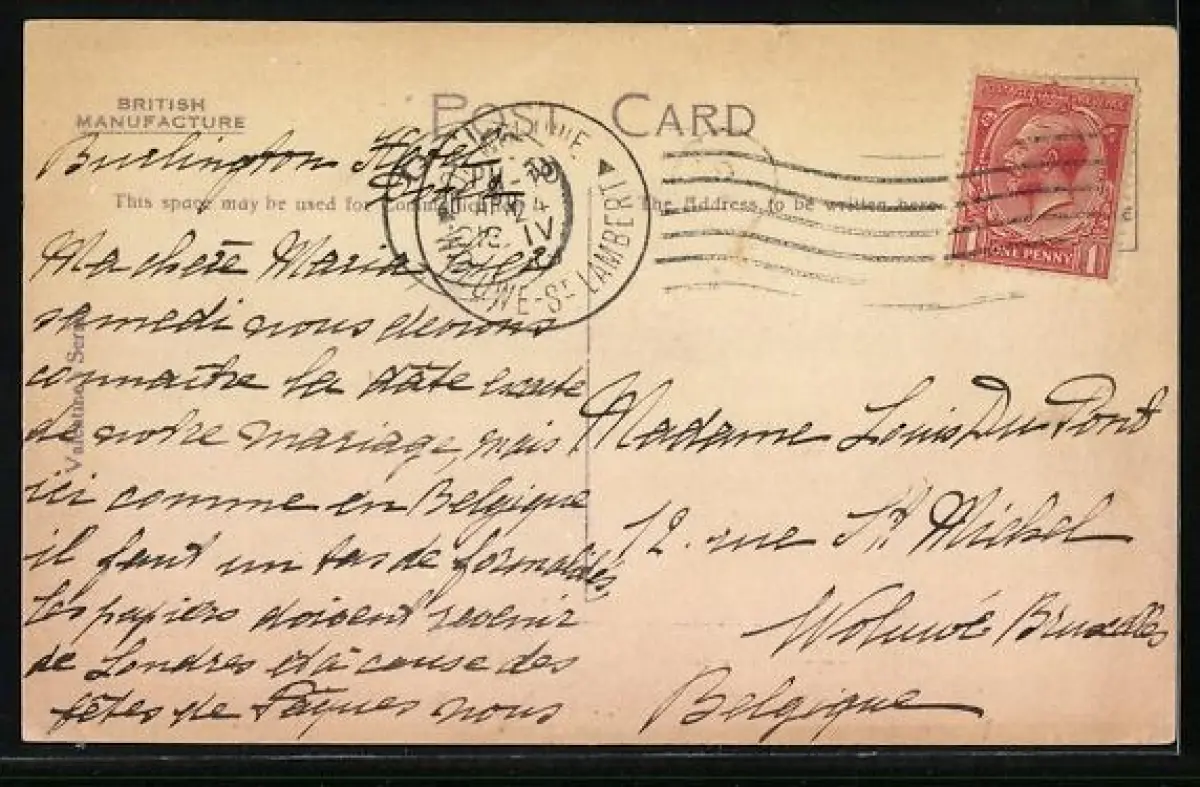 BRITISH
MANUFACTURE
POST CARD
Burlington Hotel
This space may be used for Communication
The Address to be written here
Ma chère Maria,
samedi nous devons
connaître la date exacte
de notre mariage, mais
ici comme en Belgique
il faut un tas de formalités,
les papiers doivent revenir
de Londres et à cause des
fêtes de Pâques nous
Valentines Series
WE-ST LAMBERT
24
IV
ONE PENNY
1 1
Madame Louis Du Pont
12. rue St Michel
Woluwé Bruxelles
Belgique